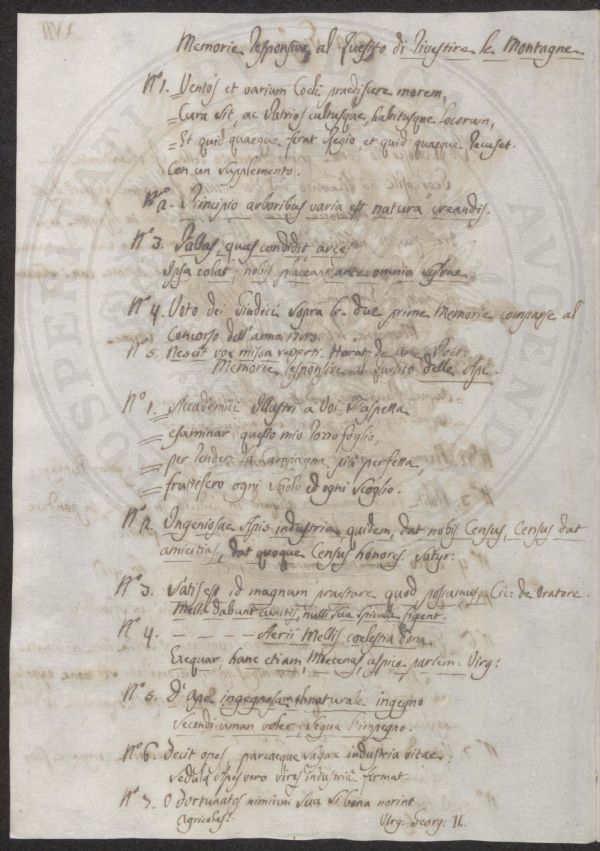 Memorie responsive al Quesito di Rivestire le Montagne
N.° 1. Ventos et varium Coeli praediscere morem,
Cura sit, ac Patrios cultusque, habitusque locorum,
Et quid quaeque ferat Regio, et quid quaeque recuset.
Con un supplemento.
N.° 2. Principio arboribus varia est natura creandis.
N.° 3. Pallas, quas condidit arces
Ipsa colat, nobis placeant ante omnia sylvae
N.° 4. Voto dei Giudici sopra le due prime Memorie comparse al
Concorso dell'anno
N.° 5. Nescit vox missa reverti. Horat: de arte Poet:
Memorie responsive al Quesito delle Api.
N.° 1. Accademici Illustri a Voi s'aspetta
esaminar questo mio rozzo foglio,
per render la Campagna più perfetta,
fruttifero ogni suolo ed ogni scoglio.
N.° 2. Ingeniosae Apis industria, quidem, dat nobis Census, Census dat
amicitias, dat quoque Census honores. Satyr:
N.° 3. Satis est id magnum praestare quod possumus. Cic: de Oratore.
Mella dabunt cunctis, nulli sua spicula figent.
N.° 4. – – – – Aerii Mellis coelestia dona
Exequar, hanc etiam, Moecenas, aspice partem: Virg:
N.° 5. D'Ape ingegnosa il naturale ingegno
Secondi uman voler, segua l'impegno.
N.° 6. Decit opes, parcaeque sagax industria vitae,
sedula Apes vero vires industria firmat.
N.° 7. O fortunatos nimium sua si bona norint
Agricolas! Virg: Georg: II.
XVII